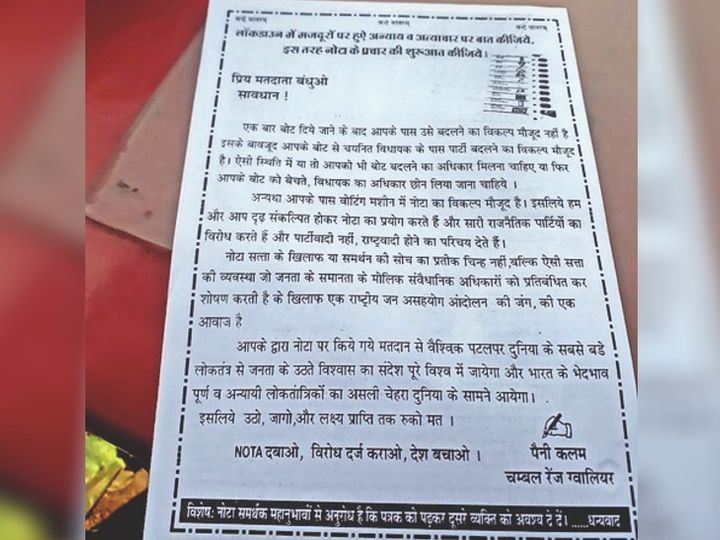 वन्दे मातरम्
वन्दे मातरम्
वन्दे मातरम्
लॉकडाउन में मजदूरों पर हुऐ अन्याय व अत्याचार पर बात कीजिये,
इस तरह नोटा के प्रचार की शुरूआत कीजिये।
प्रिय मतदाता बंधुओ
सावधान !
एक बार बोट दिये जाने के बाद आपके पास उसे बदलने का विकल्प मौजूद नहीं है
इसके बावजूद आपके बोट से चयनित विधायक के पास पार्टी बदलने का विकल्प मौजूद
है। ऐसी स्थिति में या तो आपको भी बोट बदलने का अधिकार मिलना चाहिए या फिर
आपके बोट को बेचते, विधायक का अधिकार छीन लिया जाना चाहिये ।
अन्यथा आपके पास वोटिंग मशीन में नोटा का विकल्प मौजूद है। इसलिये हम
और आप दृढ़ संकल्पित होकर नोटा का प्रयोग करते हैं और सारी राजनैतिक पार्टियों का
विरोध करते हैं और पार्टीवादी नहीं, राष्ट्रवादी होने का परिचय देते हैं।
नोटा सत्ता के खिलाफ या समर्थन की सोच का प्रतोक चिन्ह नहीं,बल्कि ऐसी सत्ता
की व्यवस्था जो जनता के समानता के मोलिक संवैधानिक अधिकारों को प्रतिबंधित कर
शोषण करती है के खिलाफ एक राष्ट्रीय जन असहयोग आंदोलन की जंग, की एक
आवाज है
आपके द्वारा नोटा पर किये गये मतदान से वैश्विक पटलपर दुनिया के सबसे बडे
लोकतंत्र से जनता के उठते विश्वास का संदेश पूरे विश्व में जायेगा और भारत के भेदभाव
पूर्ण व अन्यायी लोकतांत्रिकों का असली चेहरा दुनिया के सामने आयेगा।
इसलिये उठो, जागो,और लक्ष्य प्राप्ति तक रुको मत ।
NOTA दबाओ, विरोध दर्ज कराओ, देश बचाओ ।
पैनी कलम
चम्बल रेंज ग्वालियर
विशेष: नोटा समर्थक महानुभावों से अनुरोध है कि पत्रक को पढ़कर दूसरे व्यक्ति को अवश्य दे दें। ......धन्यवाद